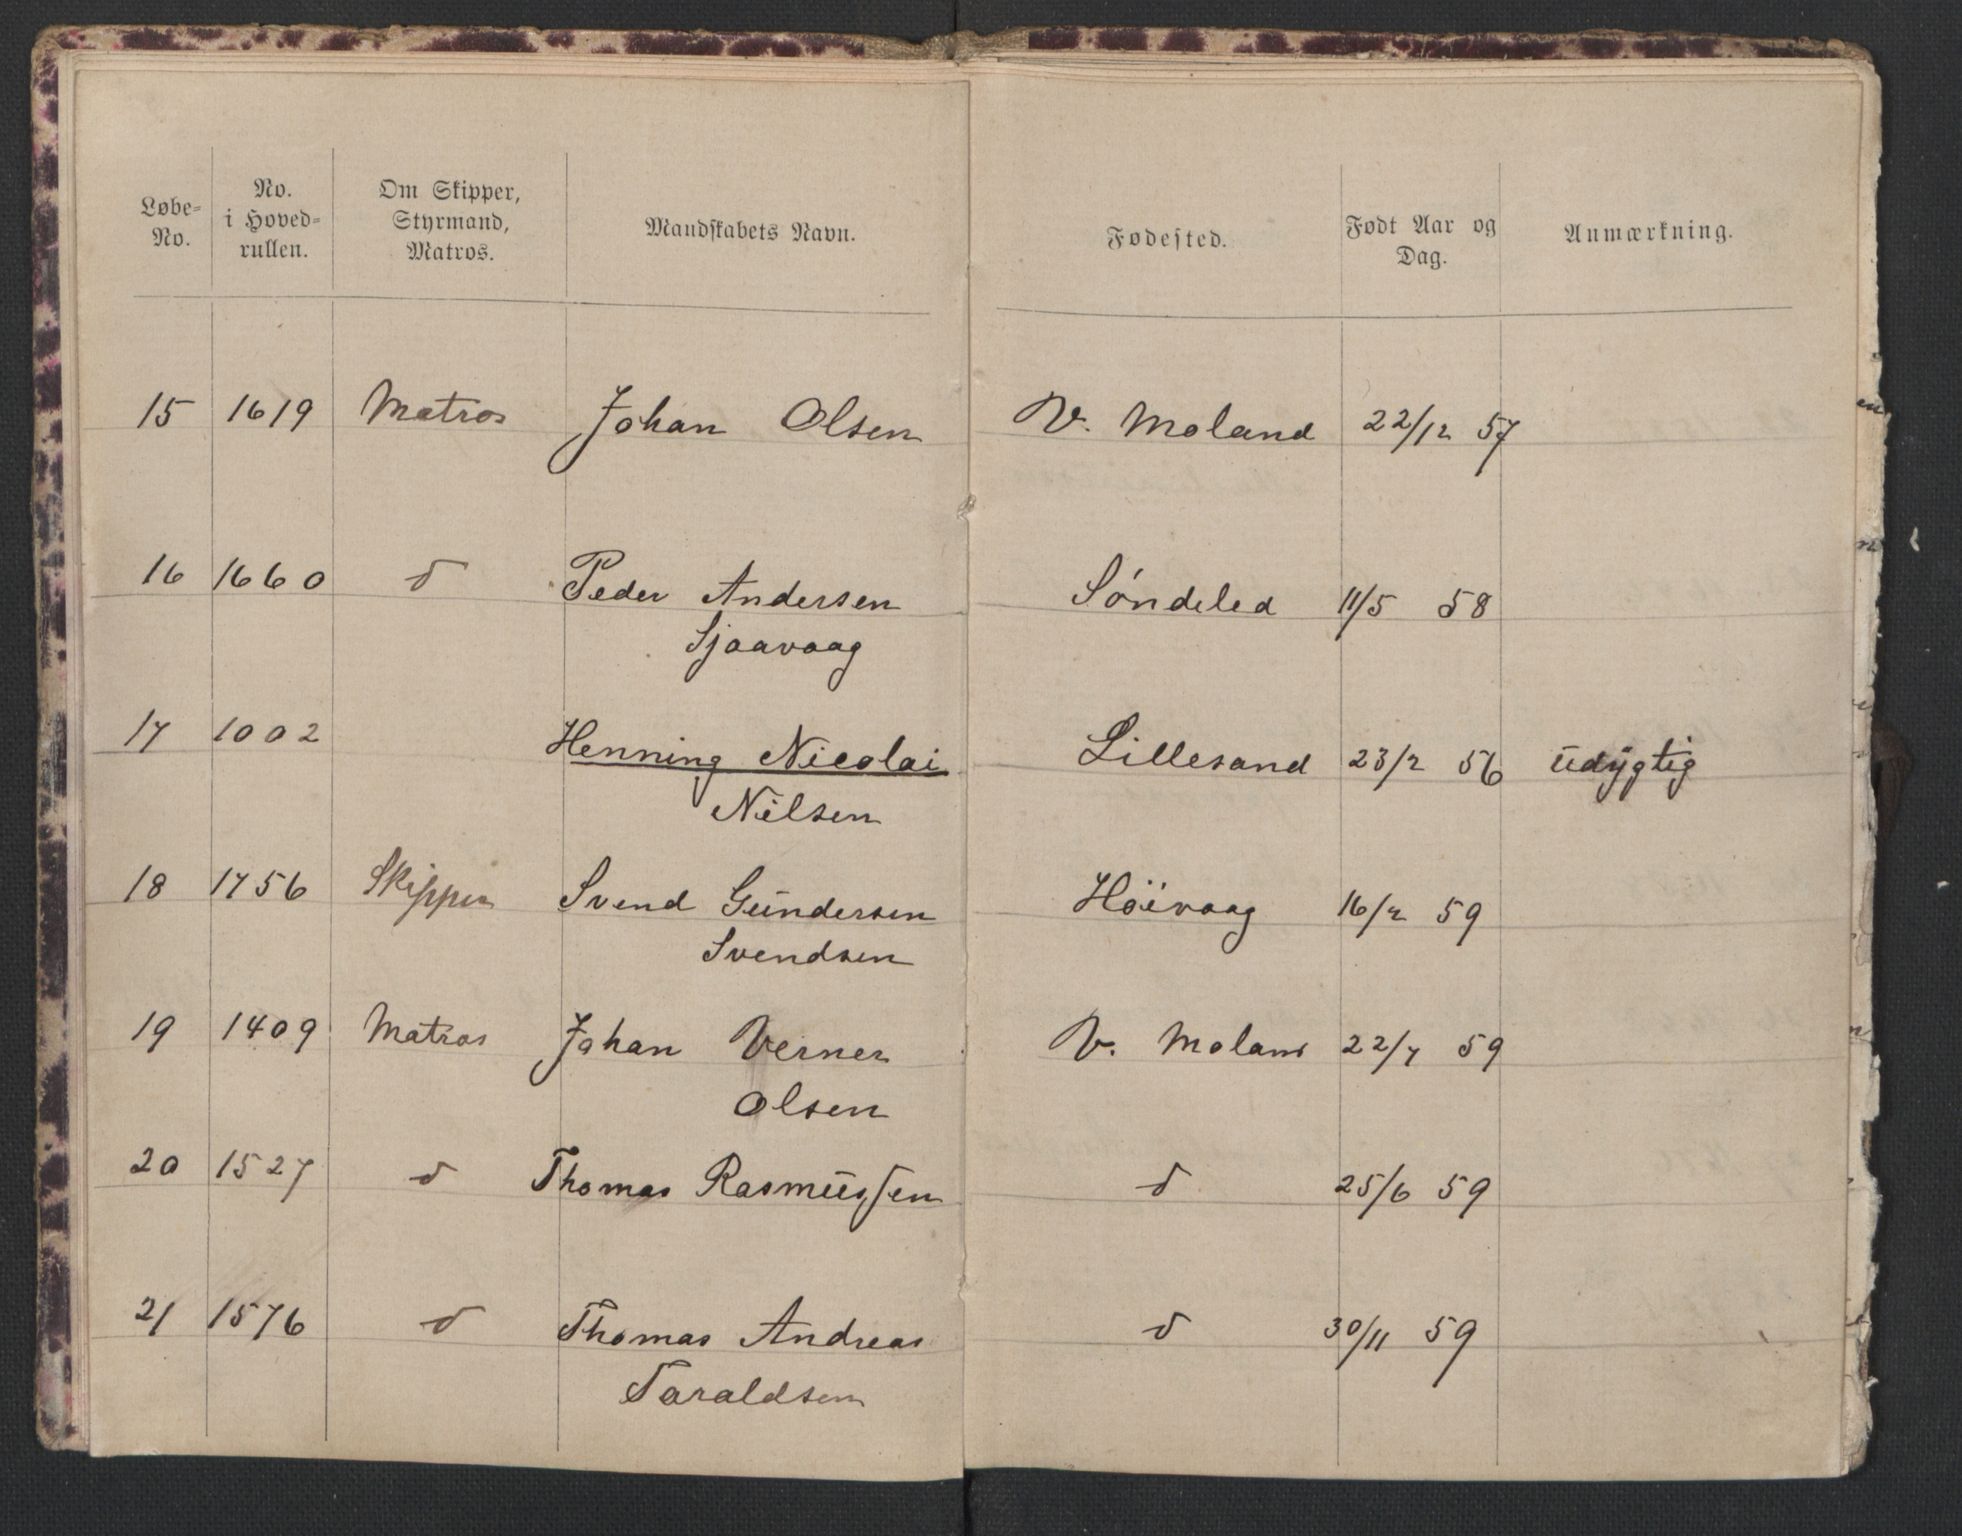 Løbe-No. No. i Hoved-rullen. Om Skipper, Styrmand, Matros. Mandskabets Navn. Fødested. Født Aar og Dag. Anmærkning.
15 1619 Matros Johan Olsen V. Moland 22/12 57
16 1660 d Peder Andersen Søndeled 11/5 58
Sjaavaag
17 1002 Henning Nicolai Lillesand 23/2 56 udygtig
Nilsen
18 1756 Skipper Svend Gundersen Høivaag 16/2 59
Svendsen
19 1409 Matros Johan Verner V. Moland 22/7 59
Olsen
20 1527 d Thomas Rasmussen d 25/6 59
21 1576 d Thomas Andreas d 30/11 59
Taraldsen